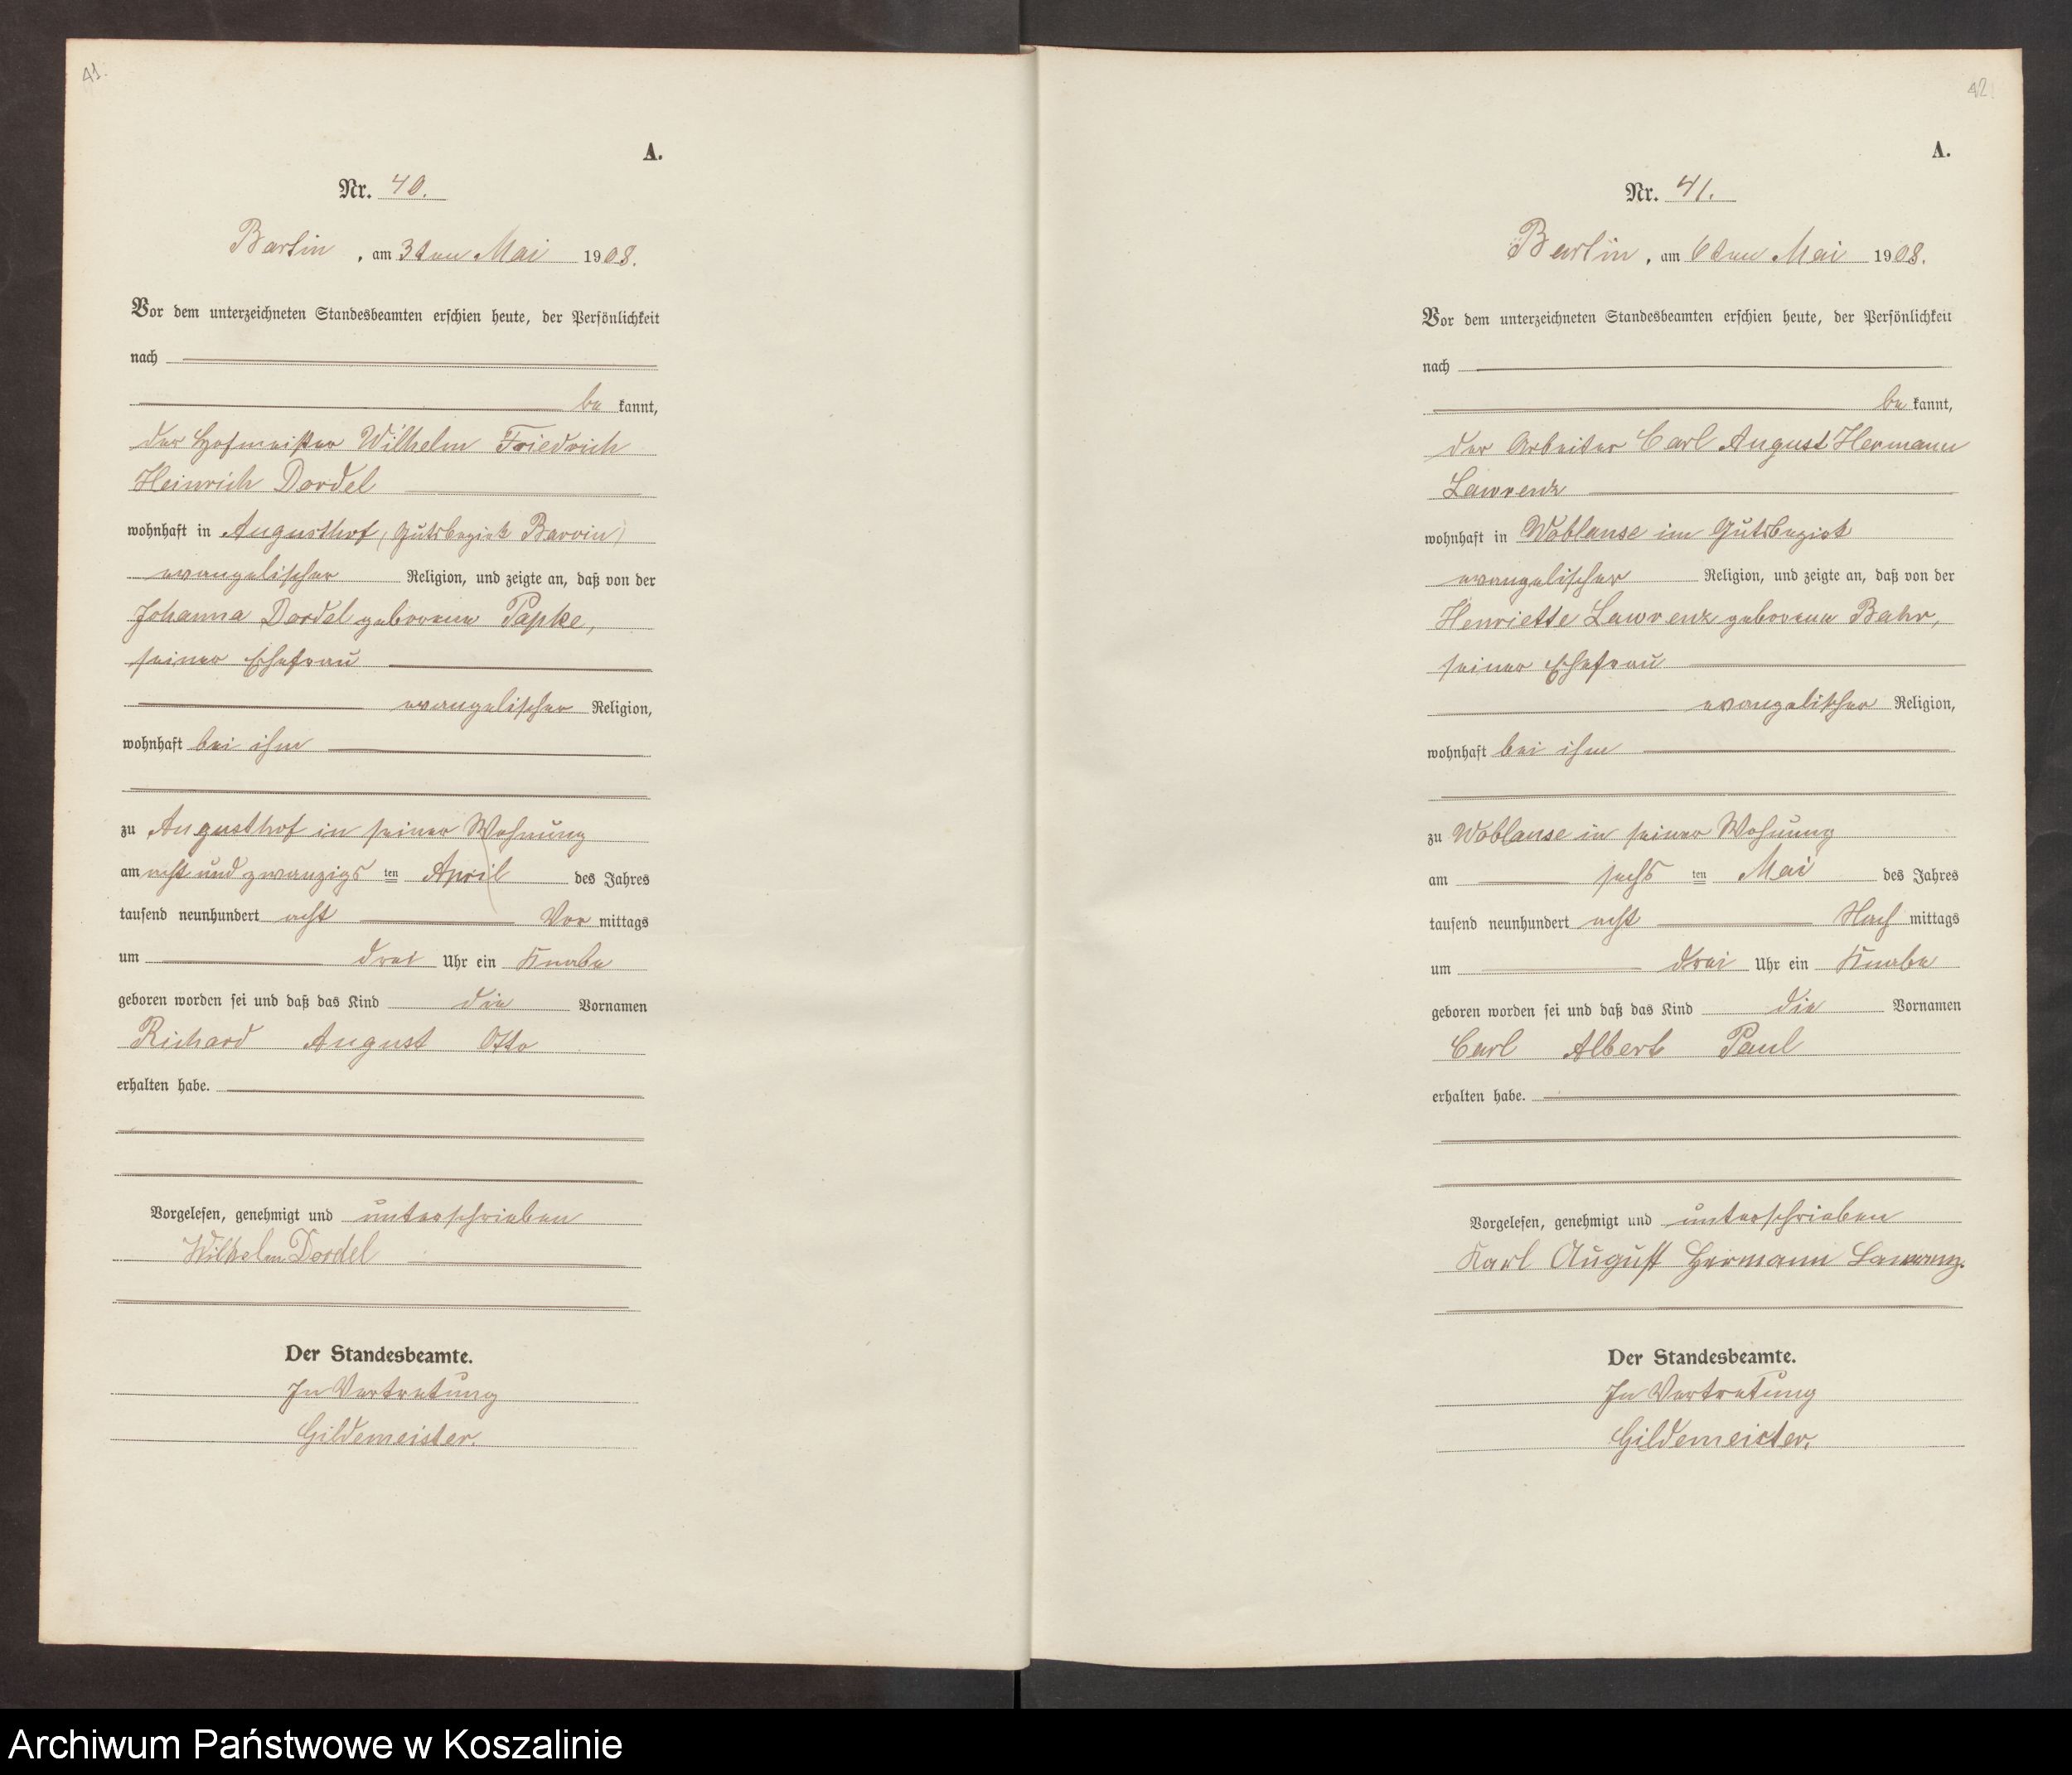 41.
A.
Nr. 40.
Bartin, am 3ten Mai 1908.
Vor dem unterzeichneten Standesbeamten erschien heute, der Persönlichkeit
nach
be kannt,
der Hofmeister Wilhelm Friedrich
Heinrich Dordel
wohnhaft in Augusthof (Gutsbezirk Barvin)
evangelischer Religion, und zeigte an, daß von der
Johanna Dordel geborene Papke,
seiner Ehefrau
evangelischer Religion,
wohnhaft bei ihm
zu Augusthof in seiner Wohnung
am acht und zwanzigs ten April des Jahres
tausend neunhundert acht Vor mittags
um drei Uhr ein Knabe
geboren worden sei und daß das Kind die Vornamen
Richard August Otto
erhalten habe.
Vorgelesen, genehmigt und unterschrieben
Wilhelm Dordel
Der Standesbeamte.
In Vertretung
Gildemeister.
42
A.
Nr. 41.
Bartin, am 6ten Mai 1908.
Vor dem unterzeichneten Standesbeamten erschien heute, der Persönlichkeit
nach
be kannt,
der Arbeiter Carl August Hermann
Lawrenz
wohnhaft in Woblanse im Gutsbezirk
evangelischer Religion, und zeigte an, daß von der
Henriette Lawrenz geborene Bahr,
seiner Ehefrau
evangelischer Religion,
wohnhaft bei ihm
zu Woblanse in seiner Wohnung
am sechs ten Mai des Jahres
tausend neunhundert acht Nach mittags
um drei Uhr ein Knabe
geboren worden sei und daß das Kind die Vornamen
Carl Albert Paul
erhalten habe.
Vorgelesen, genehmigt und unterschrieben
Karl August Hermann Lawrenz.
Der Standesbeamte.
In Vertretung
Gildemeister.
Archiwum Państwowe w Koszalinie